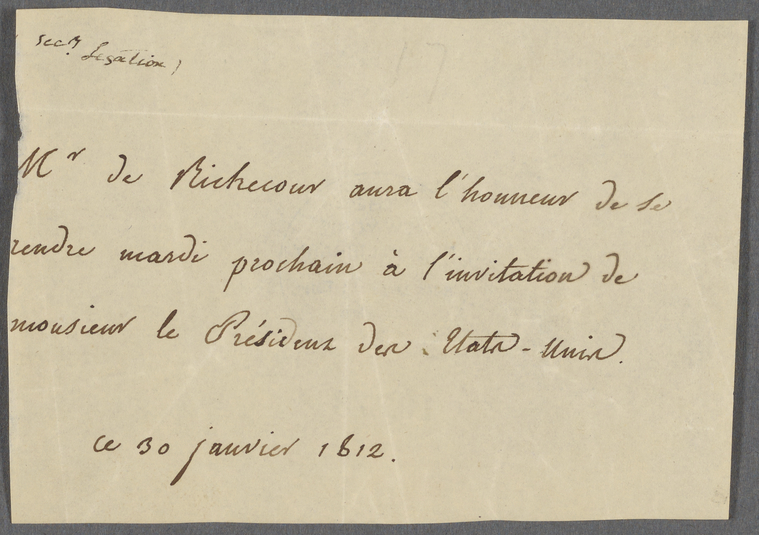 Secy Legation
Mr de Richecour aura l'honneur de se
rendre mardi prochain à l'invitation de
monsieur le Président des Etats-Unis.
ce 30 janvier 1812.